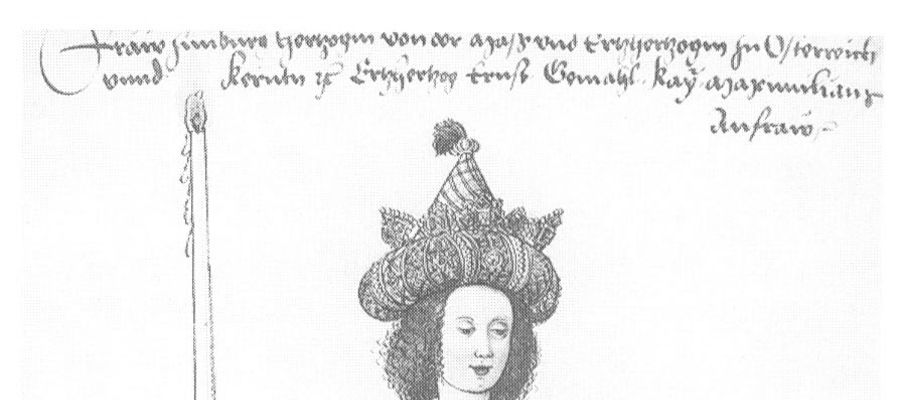 Fraw Zimburg Hertzogin von der Maß vnd Ertzhertzogin zu Osterreich
vnnd Kernntn ꝛc Ertzhertzog Ernst Gemahl Kay Maximilians
Anfraw